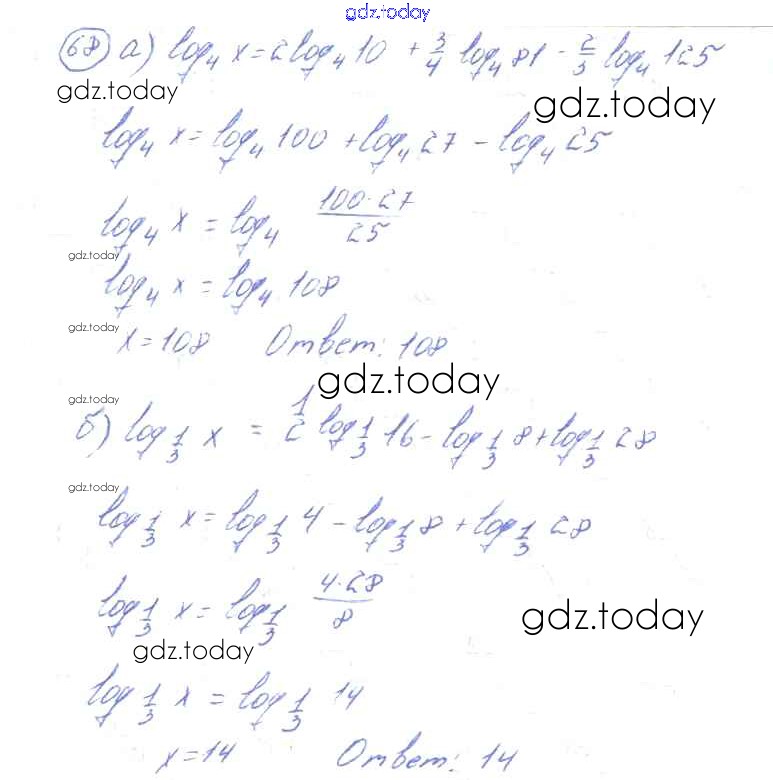 gdz.today
68 а) log₄ x = 2log₄ 10 + 3/4 log₄ 81 - 2/3 log₄ 125
gdz.today gdz.today
log₄ x = log₄ 100 + log₄ 27 - log₄ 25
log₄ x = log₄ 100·27/25
gdz.today
log₄ x = log₄ 108
gdz.today
x = 108 Ответ: 108
gdz.today
gdz.today
б) log_1/3 x = 1/2 log_1/3 16 - log_1/3 8 + log_1/3 28
gdz.today
log_1/3 x = log_1/3 4 - log_1/3 8 + log_1/3 28
log_1/3 x = log_1/3 4·28/8
gdz.today
gdz.today
log_1/3 x = log_1/3 14
x = 14 Ответ: 14